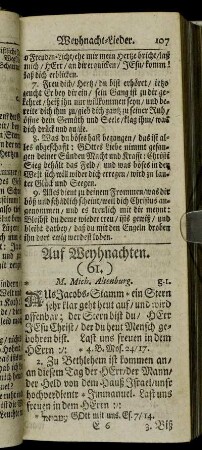 Weyhnacht-Lieder. 107
o Freuden-Licht, ehe mir mein Hertze bricht, laß
mich, HErr, an dir erquicken, JEsu komm!
laß dich erblicken.
7. Freu dich, Hertz, du bist erhöret, jetzo
zeucht Er bey dir ein, sein Gang ist zu dir ge-
kehret, heiß ihn nur willkommen seyn, und berei-
te dich ihm zu, gieb dich gantz zu seiner Ruh,
öffne dein Gemüth und Seele, klag ihm, was
dich drückt und quäle.
8. Was du böses hast begangen, das ist al-
les abgeschafft: GOttes Liebe nimmt gefan-
gen deiner Sünden Macht und Krafft: Christi
Sieg behält das Feld, und was böses in der
Welt sich will wider dich erregen, wird zu lau-
ter Glück und Seegen.
9. Alles dient zu deinem Frommen, was dir
böß und schädlich scheint, weil dich Christus an-
genommen, und es treulich mit dir meynt:
Bleibst du deme wieder treu, ists gewiß, und
bleibt darbey, daß du mit den Engeln droben
ihn dort ewig werdest loben.
Auf Weyhnachten.
(61.)
M. Mich. Altenburg. g-1.
AUs Jacobs-Stamm * ein Stern
sehr klar geht heut auf, und wird
offenbar; der Stern bist du, HErr
JEsu Christ, der du heut Mensch ge-
bohren bist. Last uns freuen in dem
HErrn :/: * 4. B. Mos. 24/17.
2. Zu Bethlehem ist kommen an,
an diesem Tag der HErr, der Mann,
der Held von dem Hauß Israel, unser
hochverdienter * Immanuel. Last uns
freuen in dem HErrn :/:
GOtt mit uns. Es. 7/14.
E 6 3. Biß